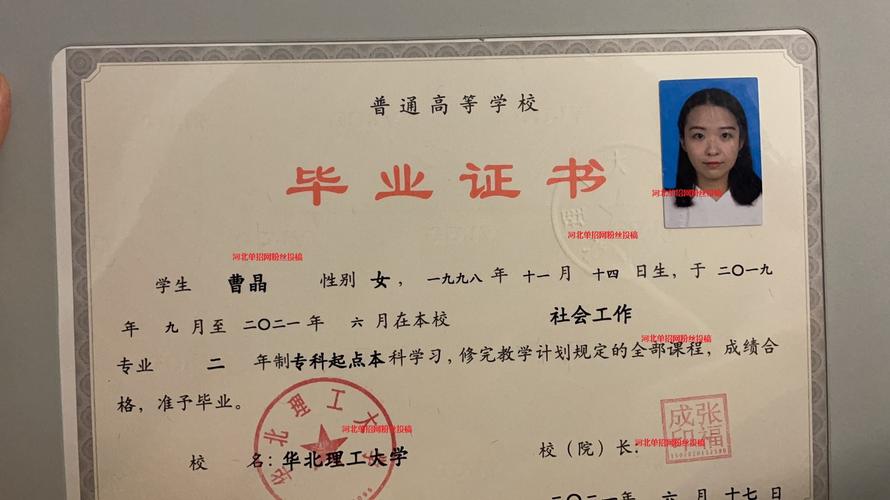 普通高等学校
毕业证书
河北单招网粉丝投稿
河北单招网粉丝投稿
河北单招网粉丝投稿
学生 曹晶 性别 女，一九九八年 十一月 十四日生，于二〇一九
年 九月至二〇二一年 六月在本校 社会工作
河北单招网粉丝投稿
专业 二 年制专科起点本科学习，修完教学计划规定的全部课程，成绩合
格，准予毕业。
华北理工大学
张福成印
河北单招网粉丝投稿
校 名：华北理工大学 校（院）长：
河北单招网粉丝投稿
二〇二一年 六月 十七日